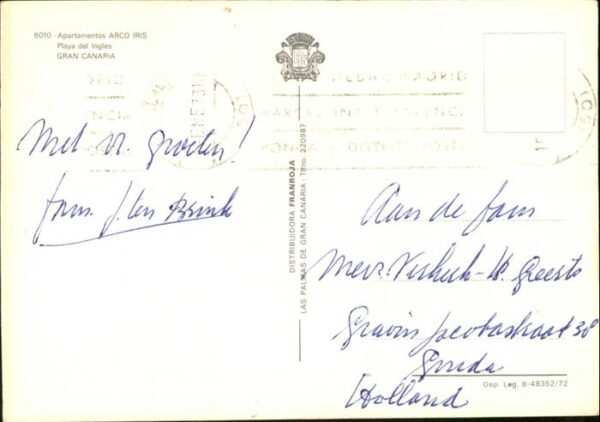 6010 - Apartamentos ARCO IRIS
Playa del Inglés
GRAN CANARIA
Met vr. groeten!
fam. J. ten Brink
DISTRIBUIDORA FRANROJA
LAS PALMAS DE GRAN CANARIA - Tfno. 220987
BILBAO MADRID
BARCELONA VALENCIA
Aan de fam
Mevr. Verkerk-
Gravin Jacobastraat 30
Gouda
Holland
Dep. Leg. B-48352/72